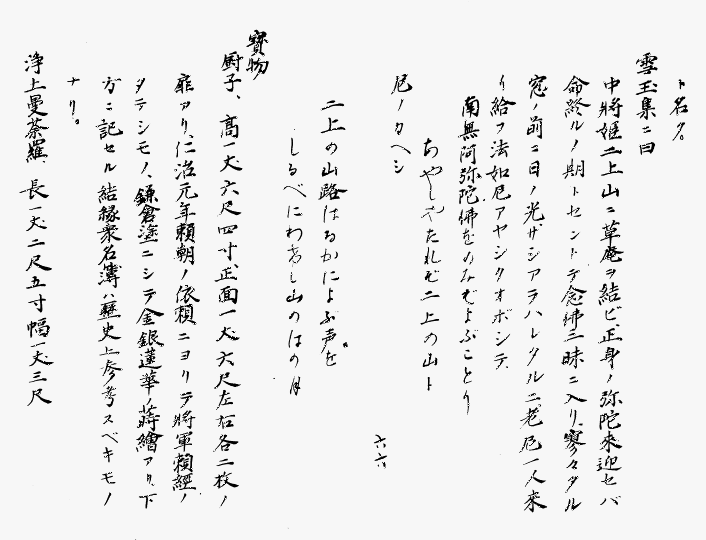 ト名ク。
雪玉集ニ曰
中將姫二上山ニ草庵ヲ結ビ正身ノ弥陀來迎セバ
命終ルノ期トセントテ念佛三昧ニ入リ寥々タル
窓ノ前ニ日ノ光サシアラハレタルニ老尼一人来
リ給フ法如尼アヤシクオボシテ
南無阿弥陀佛をのみぞよぶことり
あやしやたれぞ二上の山ト
尼ノカヘシ
二上の山路はるかによぶ声を
しるべにわたし山のはの月
寳物
厨子、高一丈六尺四寸正面一丈六尺左右各二枚ノ
扉アリ、仁治元年頼朝ノ依頼ニヨリテ將軍頼經ノ
タテシモノ、鎌倉塗ニシテ金銀蓮華ノ蒔繪アリ、下
方ニ記セル結縁衆名簿ハ歴史上参考スベキモノ
ナリ。
浄土曼荼羅、長一丈二尺五寸幅一丈三尺
六六